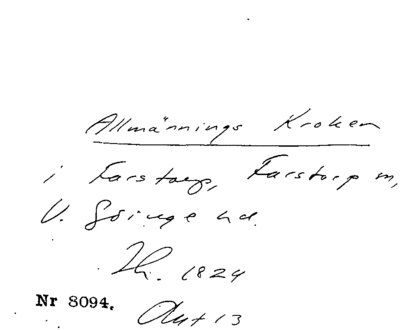 Allmännings Kroken
i Farstorp, Farstorp m,
V. Göinge hd.
1824
Nr 8094.
Akt 13